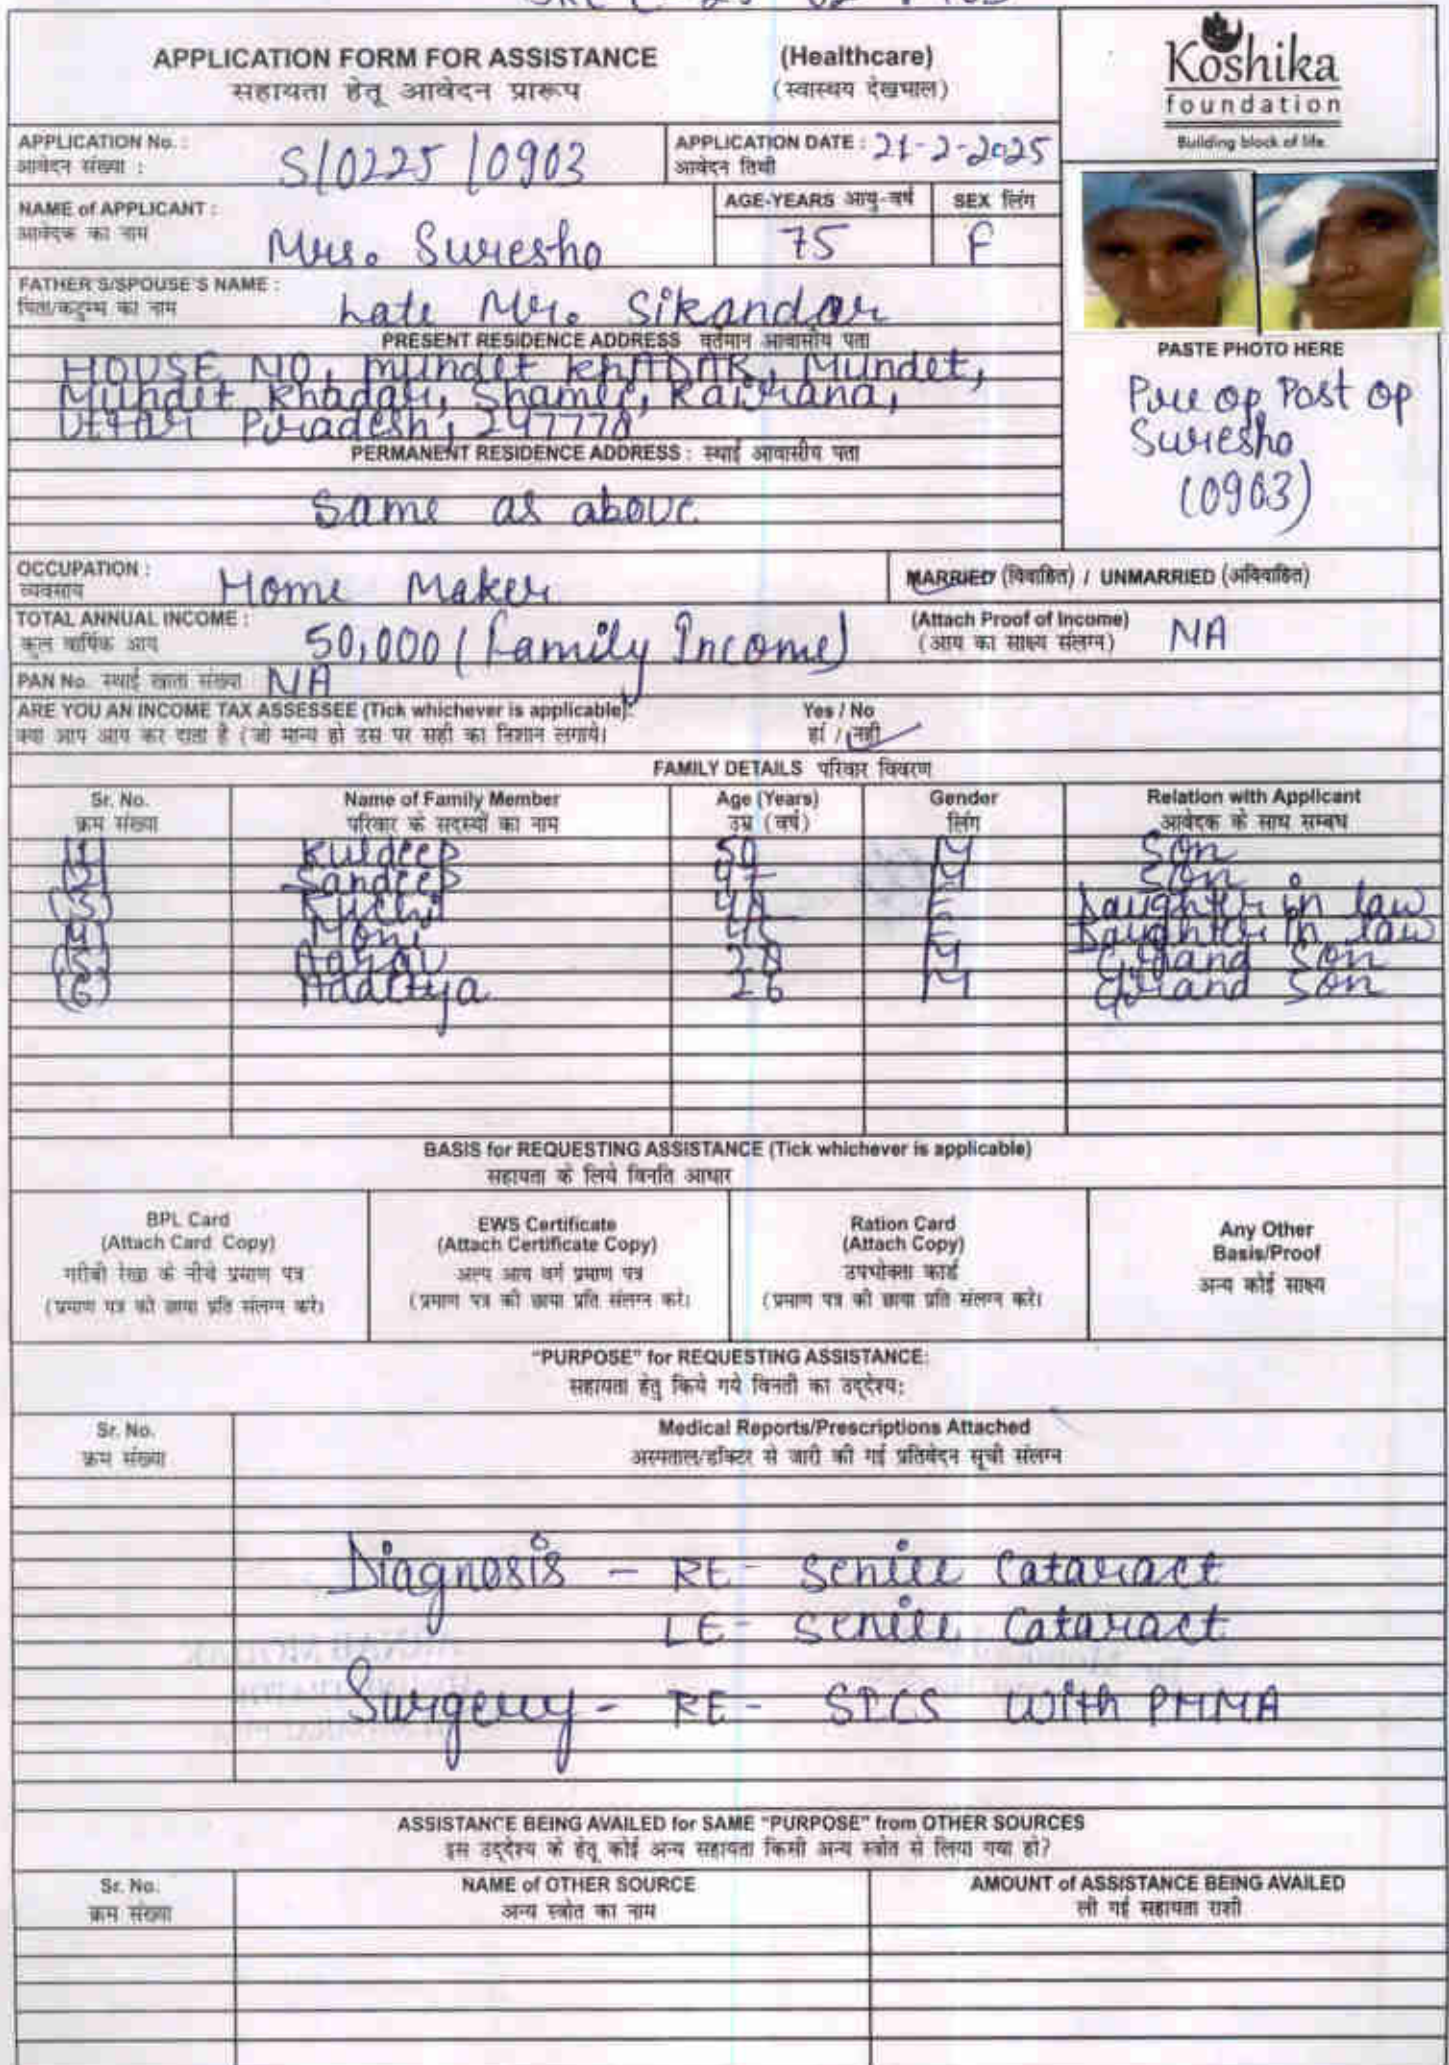 APPLICATION FORM FOR ASSISTANCE (Healthcare)
सहायता हेतू आवेदन प्रारूप (स्वास्थय देखभाल)
Koshika
foundation
Building block of life
APPLICATION No. : S/0225/0903 APPLICATION DATE : 21-2-2025
आवेदन संख्या : आवेदन तिथी
NAME of APPLICANT : Mrs. Suresho AGE-YEARS आयु-वर्ष 75 SEX लिंग F
आवेदक का नाम
FATHER'S/SPOUSE'S NAME : Late Mr. Sikandar
पिता/कटुम्ब का नाम
PRESENT RESIDENCE ADDRESS वर्तमान आवासीय पता
HOUSE NO, mundet khADAR, Mundet,
Mundet Khadar, Shamli, Kairana,
Uttar Pradesh, 247778
PERMANENT RESIDENCE ADDRESS : स्थाई आवासीय पता
Same as above
PASTE PHOTO HERE
Pre op Post op
Suresho
(0903)
OCCUPATION : Home Maker MARRIED (विवाहित) / UNMARRIED (अविवाहित)
व्यवसाय
TOTAL ANNUAL INCOME : 50,000 (Family Income) (Attach Proof of Income) NA
कुल वार्षिक आय (आय का साक्ष्य संलग्न)
PAN No. स्थाई खाता संख्या NA
ARE YOU AN INCOME TAX ASSESSEE (Tick whichever is applicable): Yes / No
क्या आप आय कर दाता है (जो मान्य हो उस पर सही का निशान लगाये। हां / नहीं
FAMILY DETAILS परिवार विवरण
Sr. No. Name of Family Member Age (Years) Gender Relation with Applicant
क्रम संख्या परिवार के सदस्यों का नाम उम्र (वर्ष) लिंग आवेदक के साथ सम्बध
(1) Kuldeep 50 M Son
(2) Sandeep M Son
(3) F Daughter in law
(4) Moni F Daughter in law
(5) 28 M Grand Son
(6) Adaitya 26 M Grand Son
BASIS for REQUESTING ASSISTANCE (Tick whichever is applicable)
सहायता के लिये विनति आधार
BPL Card
(Attach Card Copy)
गरीबी रेखा के नीचे प्रमाण पत्र
(प्रमाण पत्र की छाया प्रति संलग्न करे।
EWS Certificate
(Attach Certificate Copy)
अल्प आय वर्ग प्रमाण पत्र
(प्रमाण पत्र की छाया प्रति संलग्न करे।
Ration Card
(Attach Copy)
उपभोक्ता कार्ड
(प्रमाण पत्र की छाया प्रति संलग्न करे।
Any Other
Basis/Proof
अन्य कोई साक्ष्य
"PURPOSE" for REQUESTING ASSISTANCE:
सहायता हेतु किये गये विनती का उद्देश्य:
Sr. No. Medical Reports/Prescriptions Attached
क्रम संख्या अस्पताल/डॉक्टर से जारी की गई प्रतिवेदन सूची संलग्न
Diagnosis - RE - Senile Cataract
LE - Senile Cataract
Surgery - RE - SICS with PMMA
ASSISTANCE BEING AVAILED for SAME "PURPOSE" from OTHER SOURCES
इस उद्देश्य के हेतू कोई अन्य सहायता किसी अन्य स्त्रोत से लिया गया हो?
Sr. No. NAME of OTHER SOURCE AMOUNT of ASSISTANCE BEING AVAILED
क्रम संख्या अन्य स्त्रोत का नाम ली गई सहायता राशी